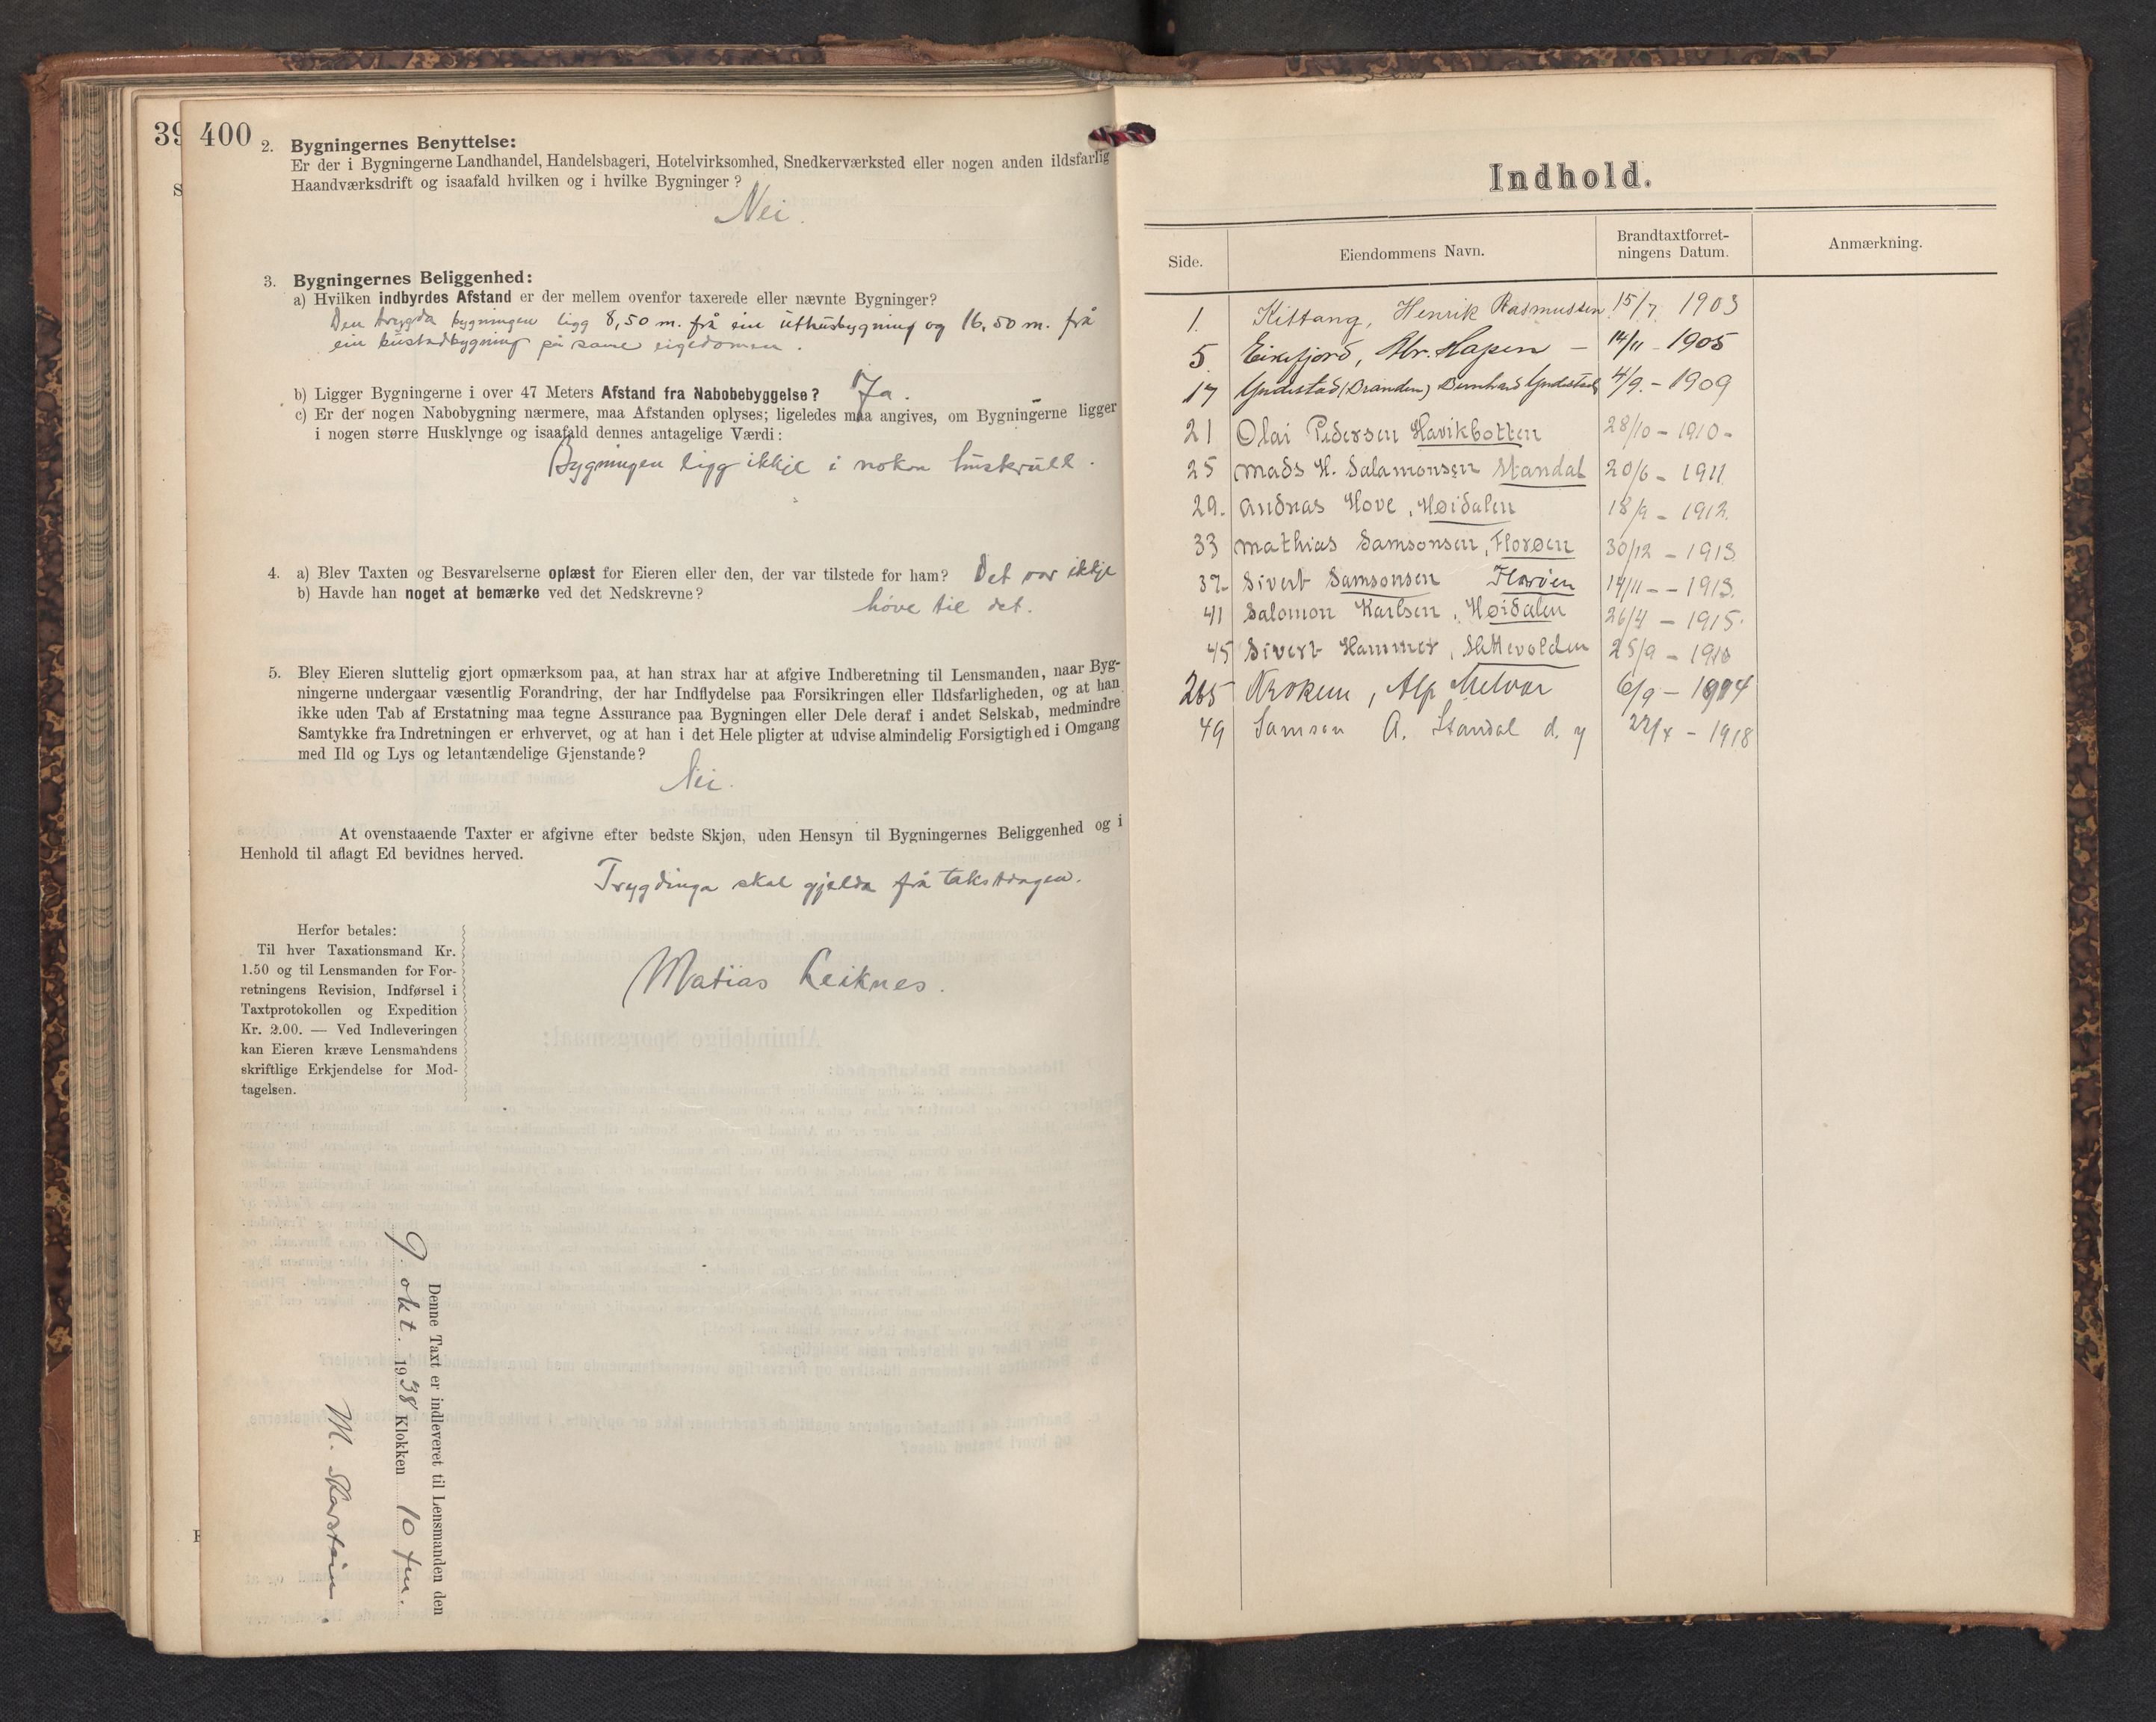 39
S
400
2. Bygningernes Benyttelse:
Er der i Bygningerne Landhandel, Handelsbageri, Hotelvirksomhed, Snedkerværksted eller nogen anden ildsfarlig
Haandværksdrift og isaafald hvilken og i hvilke Bygninger?
Nei.
3. Bygningernes Beliggenhed:
a) Hvilken indbyrdes Afstand er der mellem ovenfor taxerede eller nævnte Bygninger?
Den trygda bygningen ligg 8,50 m. frå ein uthusbygning og 16,50 m. frå
ein bustadbygning på same eigedomen.
b) Ligger Bygningerne i over 47 Meters Afstand fra Nabobebyggelse? Ja.
c) Er der nogen Nabobygning nærmere, maa Afstanden oplyses; ligeledes maa angives, om Bygningerne ligger
i nogen større Husklynge og isaafald dennes antagelige Værdi:
Bygningen ligg ikkje i nokon huskrull.
4. a) Blev Taxten og Besvarelserne oplæst for Eieren eller den, der var tilstede for ham? Det var ikkje
b) Havde han noget at bemærke ved det Nedskrevne? høve til det.
5. Blev Eieren sluttelig gjort opmærksom paa, at han strax har at afgive Indberetning til Lensmanden, naar Byg-
ningerne undergaar væsentlig Forandring, der har Indflydelse paa Forsikringen eller Ildsfarligheden, og at han
ikke uden Tab af Erstatning maa tegne Assurance paa Bygningen eller Dele deraf i andet Selskab, medmindre
Samtykke fra Indretningen er erhvervet, og at han i det Hele pligter at udvise almindelig Forsigtighed i Omgang
med Ild og Lys og letantændelige Gjenstande?
Nei.
At ovenstaaende Taxter er afgivne efter bedste Skjøn, uden Hensyn til Bygningernes Beliggenhed og i
Henhold til aflagt Ed bevidnes herved.
Trygdinga skal gjelda frå takstdagen.
Herfor betales:
Til hver Taxationsmand Kr.
1.50 og til Lensmanden for For-
retningens Revision, Indførsel i
Taxtprotokollen og Expedition
Kr. 2.00. — Ved Indleveringen
kan Eieren kræve Lensmandens
skriftlige Erkjendelse for Mod-
tagelsen.
Matias Leiknes.
Denne Taxt er indleveret til Lensmanden den
9. okt. 1938 Klokken 10 fm.
M. Skorstein.
Indhold.
Side. Eiendommens Navn. Brandtaxtforret-
ningens Datum. Anmærkning.
1. Kittang, Henrik Rasmussen 15/7. 1903
5. Eikefjord, Abr. Hopen — 14/11 - 1905
17 Yndestad (Branden) Bernhard Yndestad 4/9. - 1909
21 Olai Pedersen Havikbotten 28/10 - 1910 -
25 Mads H. Salamonsen Standal 20/6 - 1911
29. Andreas Hove, Høidalen 18/9 - 1912.
33 Mathias Samsonsen, Florøen 30/12 - 1913
37 Sivert Samsonsen Florøen 14/11 - - 1913.
41 Salomon Karlsen, Høidalen 26/4 - 1915.
45 Sivert Hammer, 25/9 - 1910
265 Krokene, Alp Melvær 6/9 - 1924
49 Samson A. Standal d. y 22/4 - 1918